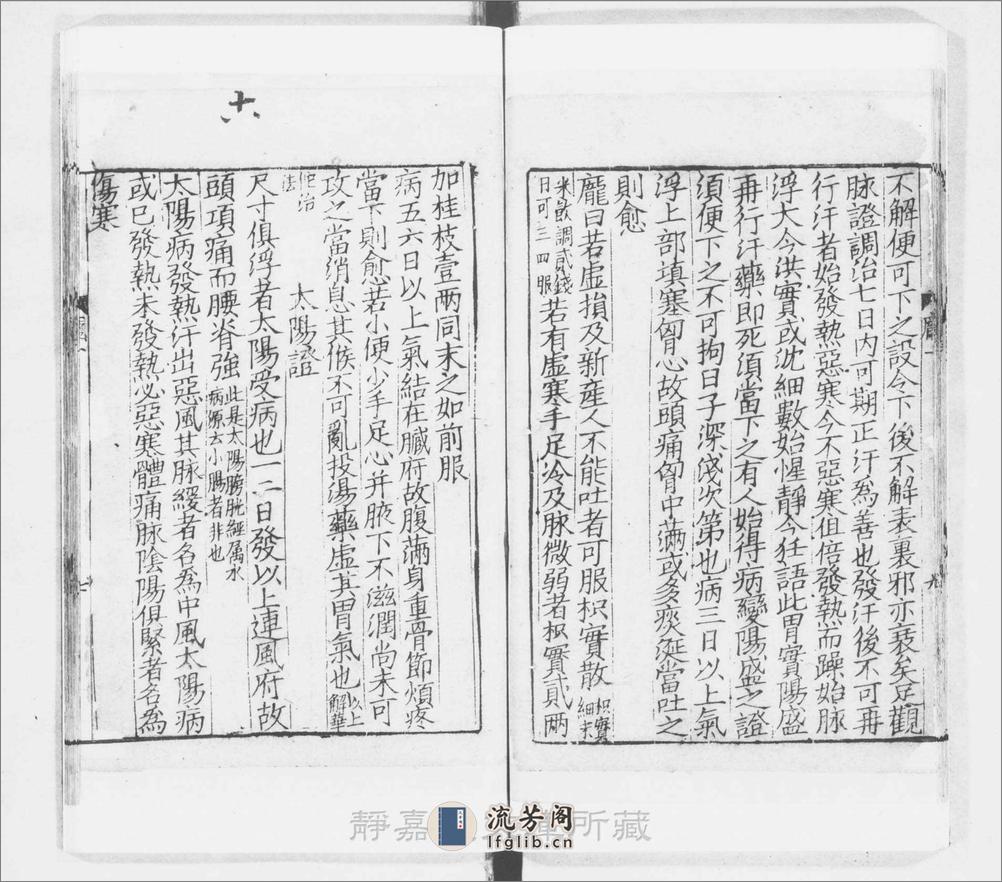 不解便可下之設令下後不解表裏邪亦衰矣足觀
脉證調治七日内可期正汗爲善也發汗後不可再
行汗者始發熱惡寒今不惡寒但倍發熱而躁始脉
浮大今洪實或沈細數始惺靜今狂語此胃實陽盛
再行汗藥即死須當下之有人始得病變陽盛之證
須便下之不可拘日子深淺次第也病三日以上氣
浮上部填塞胷心故頭痛胷中滿或多痰涎當吐之
則愈
龐曰若虛損及新産人不能吐者可服枳實散枳實細末
米飲調貳錢日可三四服若有虛寒手足冷及脉微弱者枳實貳兩
加桂枝壹兩同末之如前服
病五六日以上氣結在臟府故腹滿身重骨節煩疼
當下則愈若小便少手足心并腋下不滋潤尚未可
攻之當消息其候不可亂投湯藥虛其胃氣也以上解華
佗治法
太陽證
尺寸俱浮者太陽受病也一二日發以上連風府故
頭項痛而腰脊強此是太陽膀胱經屬水病源云小腸者非也
太陽病發熱汗出惡風其脉緩者名為中風太陽病
或已發熱未發熱必惡寒體痛脉陰陽俱緊者名為
傷寒
十六
靜嘉
所藏
流芳阁
lfglib.cn